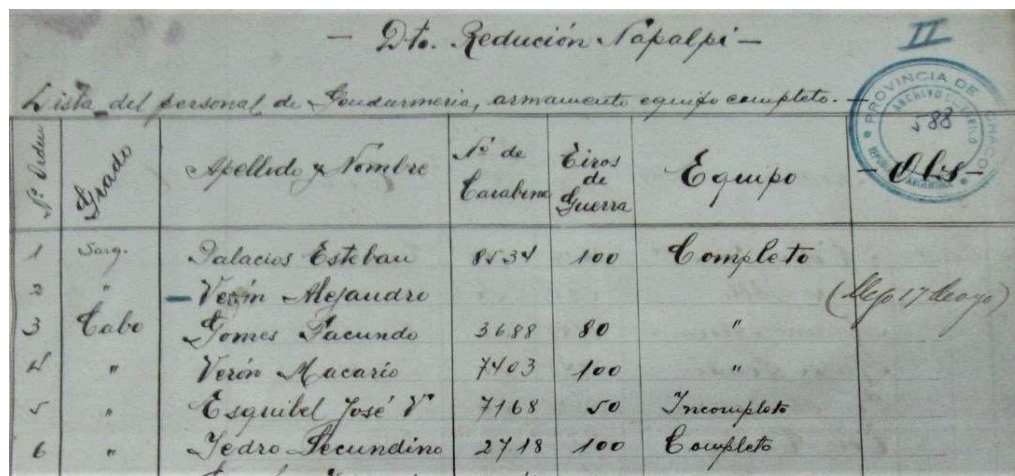 — Dto. Redución Napalpí —
II
Lista del personal de Gendarmeria, armamento equipo completo. —
PROVINCIA DE CHACO
ARCHIVO HISTORICO
588
ARGENTINA
Nº Orden Grado Apellido y Nombre Nº de Carabina Tiros de Guerra Equipo — Obs —
1 Sarg. Palacios Esteban 8534 100 Completo
2 " Verón Alejandro (llegó 17 de ago)
3 Cabo Gomes Facundo 3688 80 "
4 " Verón Macario 7403 100 "
5 " Esquibel José V. 7168 50 Incompleto
6 " Pedro Secundino 2718 100 Completo